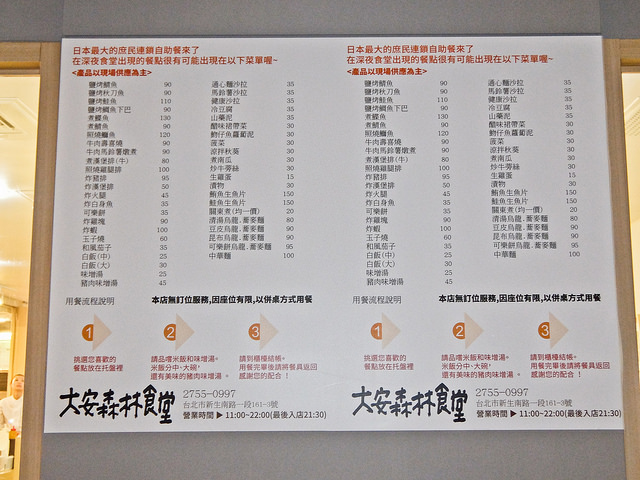 日本最大的庶民連鎖自助餐來了
在深夜食堂出現的餐點很有可能出現在以下菜單喔~
<產品以現場供應為主>
鹽烤鯖魚 90
鹽烤秋刀魚 90
鹽烤鮭魚 110
鹽烤鯛魚下巴 90
煮鰈魚 130
煮鯖魚 90
照燒鱈魚 120
牛肉壽喜燒 90
牛肉馬鈴薯燉煮 90
煮漢堡排(牛) 80
照燒雞腿排 100
炸豬排 95
炸漢堡排 50
炸火腿 45
炸白身魚 35
可樂餅 35
炸雞塊 90
炸蝦 100
玉子燒 60
和風茄子 35
白飯(中) 25
白飯(大) 30
味增湯 25
豬肉味增湯 45
通心麵沙拉 35
馬鈴薯沙拉 35
健康沙拉 35
冷豆腐 35
山藥泥 35
醋味裙帶菜 30
吻仔魚蘿蔔泥 30
菠菜 30
涼拌秋葵 30
煮南瓜 30
炒牛蒡絲 30
生雞蛋 15
漬物 30
鮪魚生魚片 150
鮭魚生魚片 150
關東煮(均一價) 20
清湯烏龍.蕎麥麵 80
豆皮烏龍.蕎麥麵 90
昆布烏龍.蕎麥麵 90
可樂餅烏龍.蕎麥麵 95
中華麵 100
用餐流程說明
本店無訂位服務,因座位有限,以併桌方式用餐
1
挑選您喜歡的
餐點放在托盤裡
2
請品嚐米飯和味增湯。
米飯分中、大碗,
還有美味的豬肉味增湯。
3
請到櫃檯結帳。
用餐完畢後請將餐具返回
感謝您的配合!
大安森林食堂
2755-0997
台北市新生南路一段161-3號
營業時間 ▶ 11:00~22:00(最後入店21:30)
日本最大的庶民連鎖自助餐來了
在深夜食堂出現的餐點很有可能出現在以下菜單喔~
<產品以現場供應為主>
鹽烤鯖魚 90
鹽烤秋刀魚 90
鹽烤鮭魚 110
鹽烤鯛魚下巴 90
煮鰈魚 130
煮鯖魚 90
照燒鱈魚 120
牛肉壽喜燒 90
牛肉馬鈴薯燉煮 90
煮漢堡排(牛) 80
照燒雞腿排 100
炸豬排 95
炸漢堡排 50
炸火腿 45
炸白身魚 35
可樂餅 35
炸雞塊 90
炸蝦 100
玉子燒 60
和風茄子 35
白飯(中) 25
白飯(大) 30
味增湯 25
豬肉味增湯 45
通心麵沙拉 35
馬鈴薯沙拉 35
健康沙拉 35
冷豆腐 35
山藥泥 35
醋味裙帶菜 30
吻仔魚蘿蔔泥 30
菠菜 30
涼拌秋葵 30
煮南瓜 30
炒牛蒡絲 30
生雞蛋 15
漬物 30
鮪魚生魚片 150
鮭魚生魚片 150
關東煮(均一價) 20
清湯烏龍.蕎麥麵 80
豆皮烏龍.蕎麥麵 90
昆布烏龍.蕎麥麵 90
可樂餅烏龍.蕎麥麵 95
中華麵 100
用餐流程說明
本店無訂位服務,因座位有限,以併桌方式用餐
1
挑選您喜歡的
餐點放在托盤裡
2
請品嚐米飯和味增湯。
米飯分中、大碗,
還有美味的豬肉味增湯。
3
請到櫃檯結帳。
用餐完畢後請將餐具返回
感謝您的配合!
大安森林食堂
2755-0997
台北市新生南路一段161-3號
營業時間 ▶ 11:00~22:00(最後入店21:30)